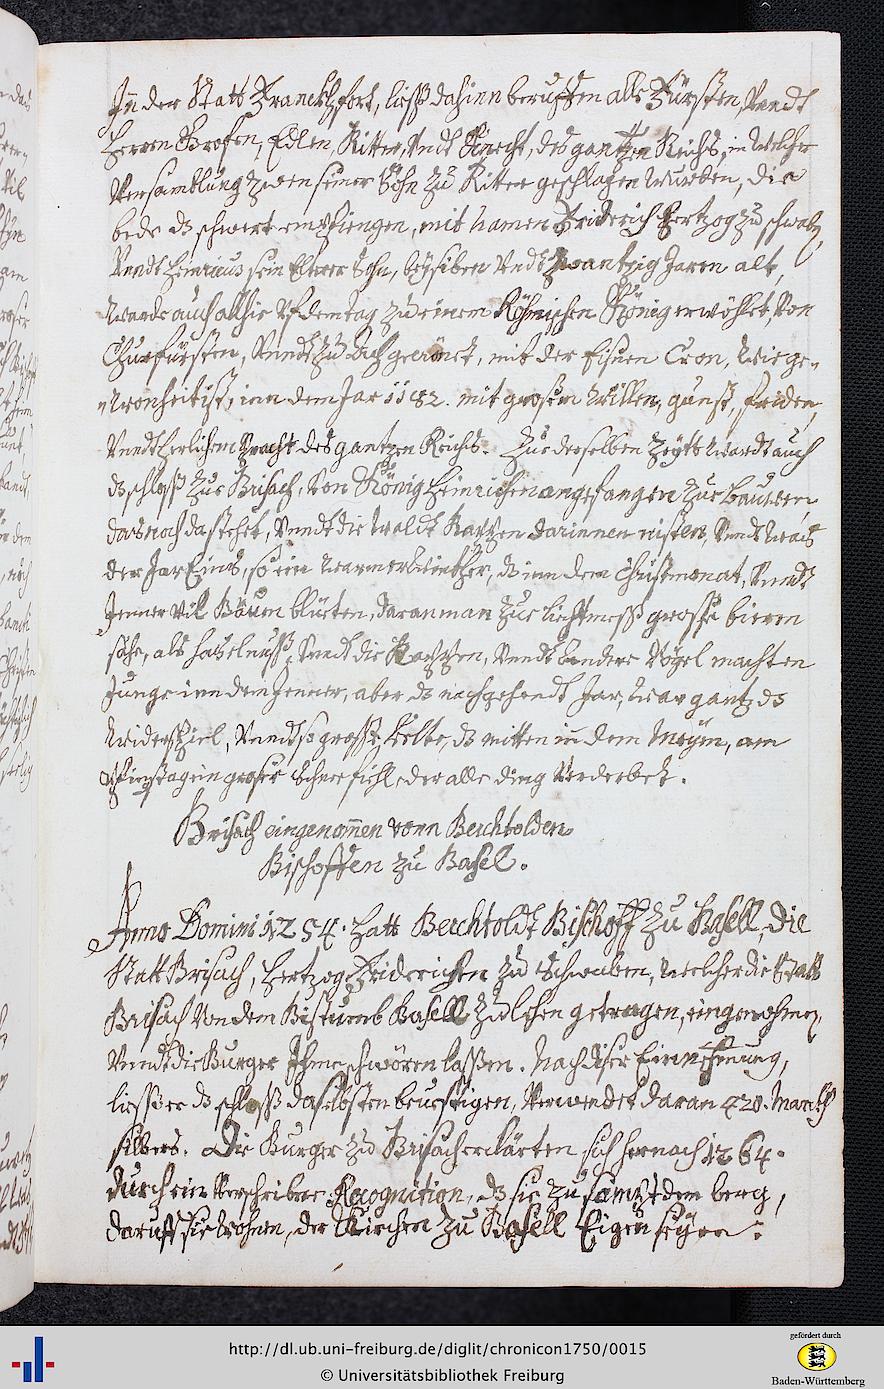 Inn der Statt Franckhfort, ließß dahinn beruffen alle Fürsten, Vnndt
Herren Grafen, Edlen, Ritter, Vndt Knecht, des gantzen Reichs, in welcher
Versamblung zween seiner Söhn zu Ritter geschlagen wurden, die
bede ds schwert empfiengen, mit namen Friderich Hertzog zu schwaben,
Vnndt Heinricus sein Elterer Sohn, bey siben Vndt zwantzig Jaren alt,
wardt auch alhie Vf dem tag zu einem Röhmischen König erwöhlet, Von
Churfürsten, Vnndt zu Ach gecrönet, mit der Eisnen Cron, wie ge-
wonheit ist, inn dem Jar 1182. mit grosem willen, gunst, friden,
Vnndt herlichem Pracht des gantzen Reichs. Zue derselben Zeytt wardt auch
ds schloß zue Brisach, Von König Heinrichen angefangen zue bauwen,
das noch da stehet, Vnndt die waldt Rappen darinnen nisten, Vnndt was
der Jar Eins, so ein warmer Winther, ds inn dem Christmonat, Vnndt
Jenner vil Bäum blüeten, daran man zue liechtmeß grosse bieren
sahe, als haselnuß, Vnndt die Rappen, Vnndt andere Vögel machten
Junge inn dem Jenner, aber ds nachgehendt Jar, war gantz ds
Widerspiel, Vnndt so grosse kelte, ds mitten in dem Meyen, am
Pfingstag ein groser Schnee fiehl, der alle ding Verderbet.
Brisach eingenom̄en vonn Berchtolden
Bischoffen zu Basel.
Anno Domini 1254. hatt Berchtoldt Bischoff zu Basell, die
Statt Brisach, Hertzog Friderichen zu Schwaben, welcher die Statt
Brisach Von dem Bistumb Basell zu lehen getragen, eingenohmen,
Vnndt die Burger Ihme schwören lassen. Nach diser Einnehmung,
ließ er ds schloß daselbsten beuestigen, Verwendet daran 420. Marckh
silbers. Die Burger zu Brisach erclärten sich hernach 1264.
durch ein Verschribne Recognition, ds sie zu sampt dem berg,
daruff sie wohnen, der Kirchen zu Basell Eigen seyen:
http://dl.ub.uni-freiburg.de/diglit/chronicon1750/0015
© Universitätsbibliothek Freiburg
gefördert durch
Baden-Württemberg